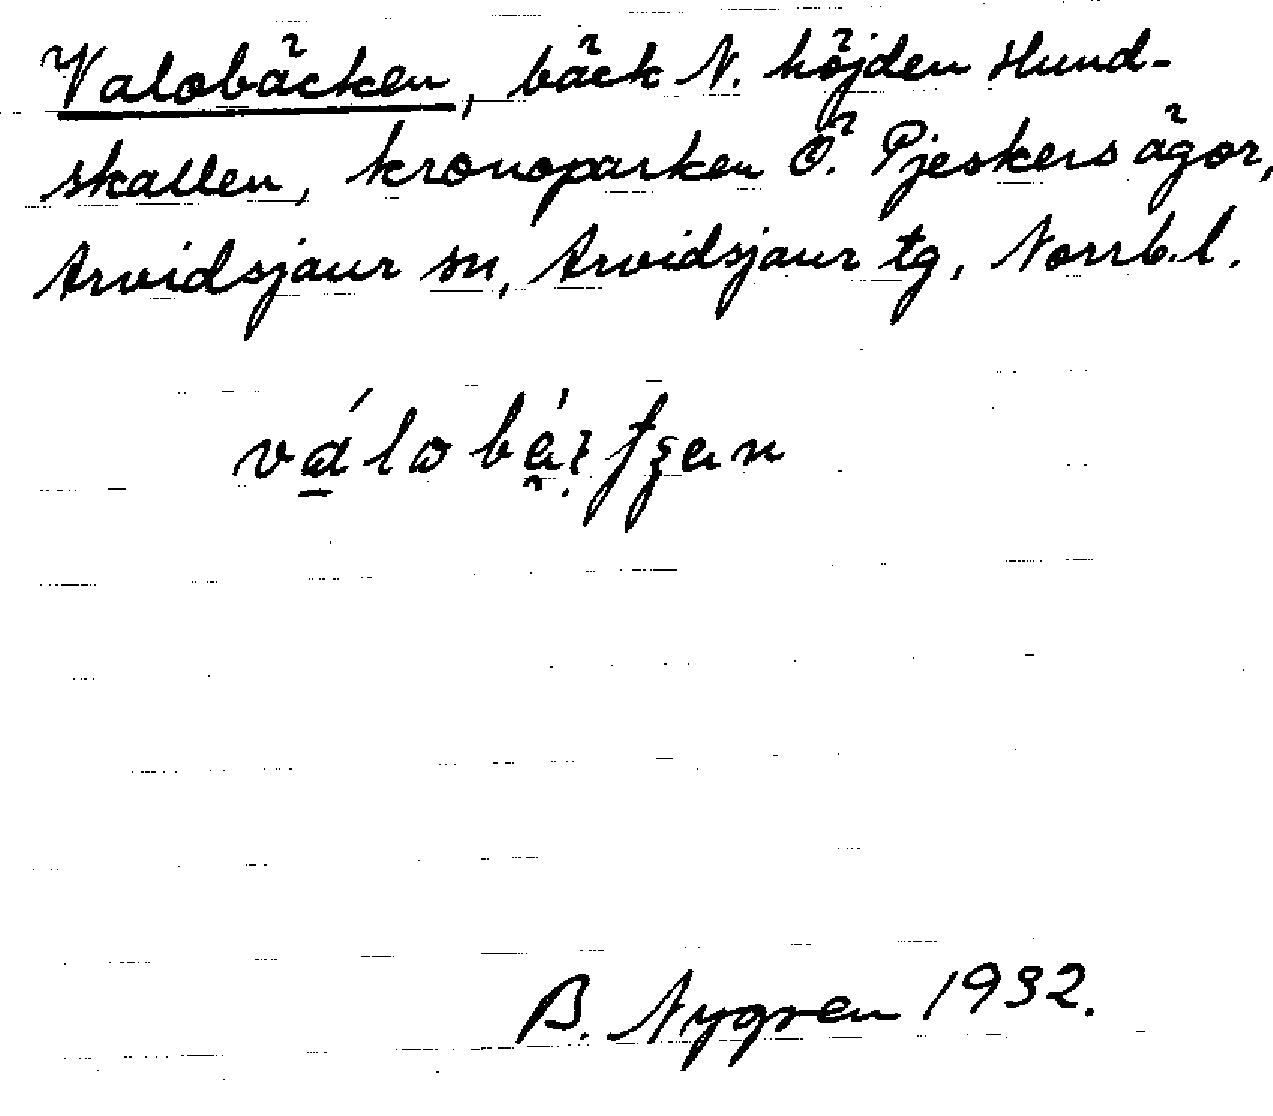 Valobäcken, bäck N. höjden Hund-
skallen, kronoparken Ö. Pjeskers ägor,
Arvidsjaur sn, Arvidsjaur tg, Norrb. l.
B. Nygren 1932.